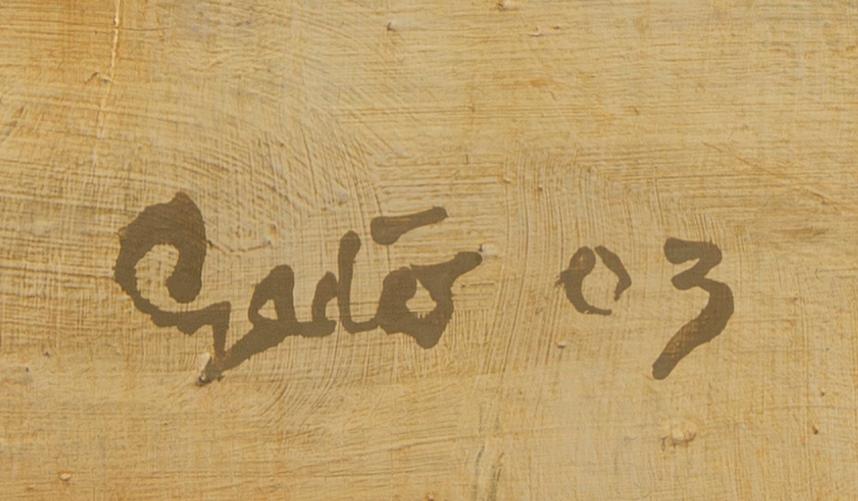 Gadó 03